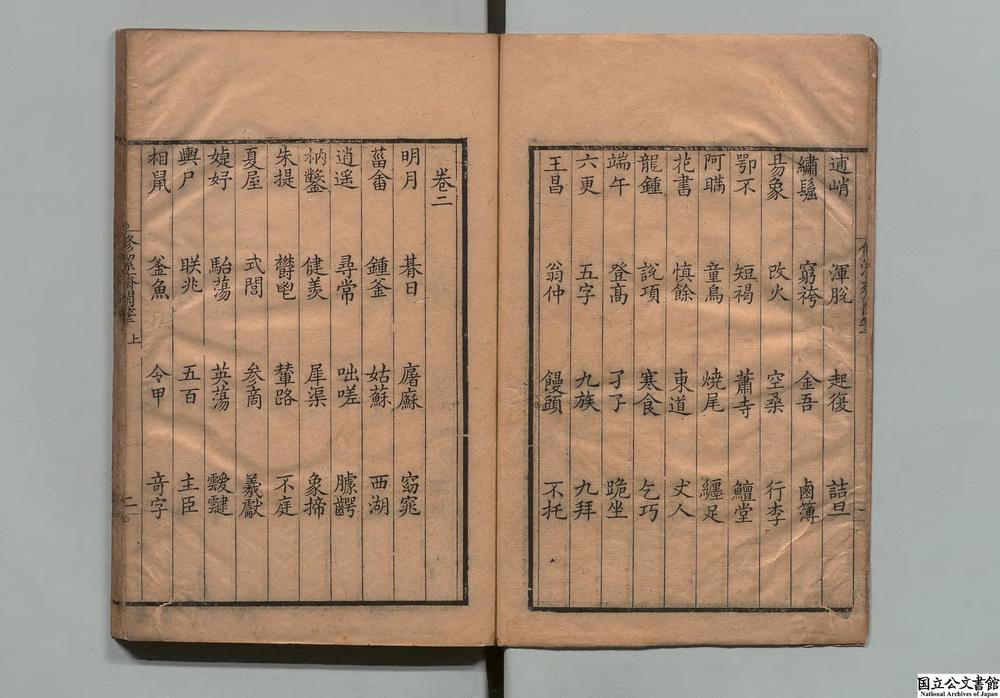 逋峭 渾脫 起復 詰旦
繡䯻 窮袴 金吾 鹵簿
易象 改火 空桑 行李
鄂不 短褐 蕭寺 鱣堂
阿瞞 童烏 燒尾 纏足
花書 慎餘 東道 丈人
龍鍾 說項 寒食 乞巧
端午 登高 孑孓 跪坐
六更 五字 九族 九拜
王昌 翁仲 饅頭 不托
卷二
明月 碁日 廜㢝 窈窕
菑畬 鍾釜 姑蘇 西湖
逍遥 尋常 咄嗟 臄齶
枘鑿 健羨 犀渠 象揥
朱提 欎鬯 輦路 不庭
夏屋 式閭 参商 羲獻
婕妤 駘蕩 英蕩 靉靆
輿尸 朕兆 五百 主臣
相鼠 釜魚 令甲 奇字
修潔齋閑筆 上 二
国立公文書館
National Archives of Japan